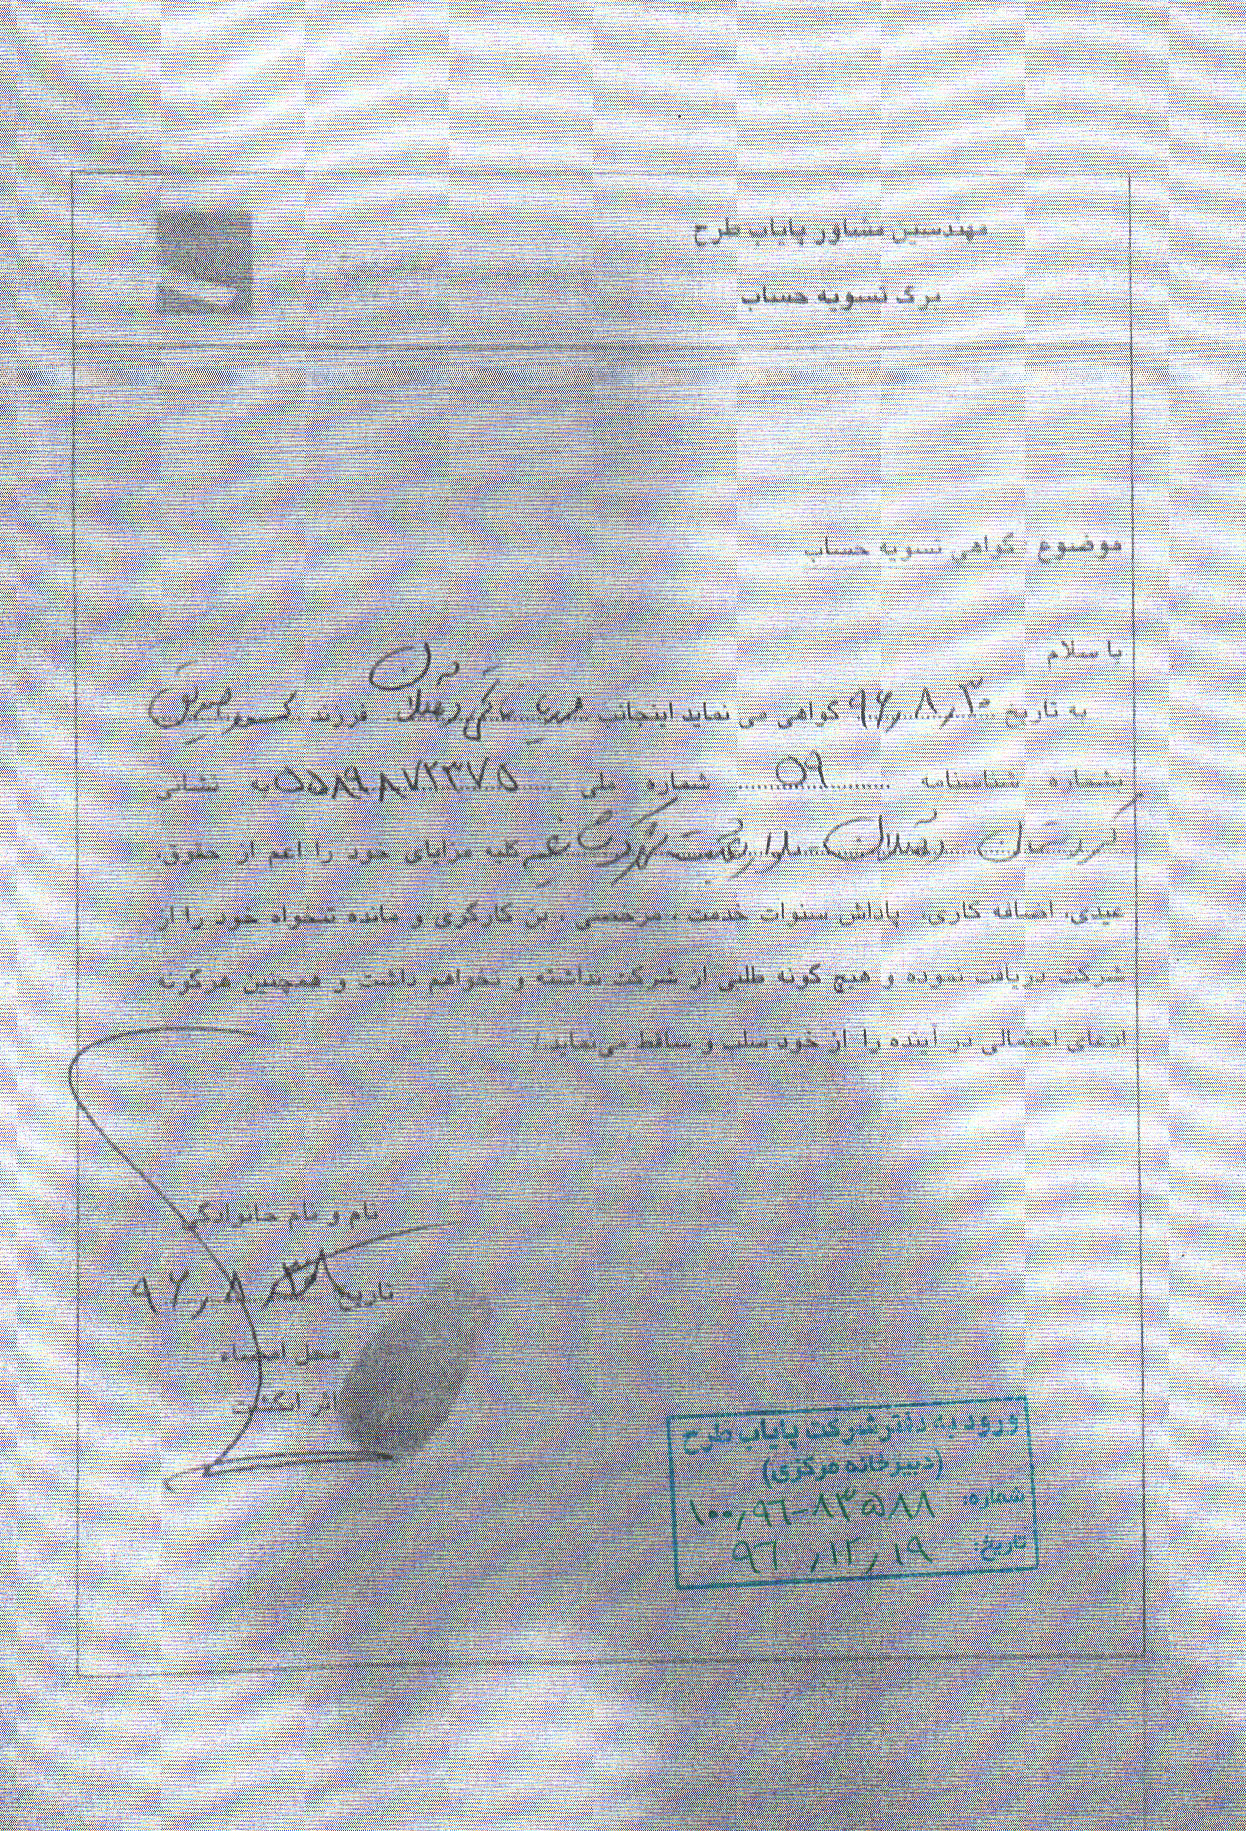 مهندسین مشاور پایاب طرح
برگ تسویه حساب
موضوع : گواهی تسویه حساب
با سلام
به تاریخ ۹۶,۸,۳۰ گواهی می نماید اینجانب فرزند
بشماره شناسنامه ۵۹ شماره ملی ۵۵۸۹۸۷۲۳۷۵ به نشانی
کلیه مزایای خود را اعم از حقوق،
عیدی، اضافه کاری، پاداش سنوات خدمت ، مرخصی ، بن کارگری و مانده تنخواه خود را از
شرکت دریافت نموده و هیچ گونه طلبی از شرکت نداشته و نخواهم داشت و همچنین هرگونه
ادعای احتمالی در آینده را از خود سلب و ساقط می‌نماید./
نام و نام خانوادگی
تاریخ ۹۶,۸,۳۰
محل امضاء
اثر انگشت
ورود به دفتر شرکت پایاب طرح
(دبیرخانه مرکزی)
شماره: ۱۰۰,۹۶-۸۳۵۸۸
تاریخ: ۹۶,۱۲,۱۹